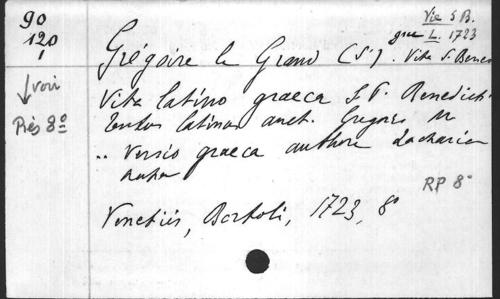 90
120
1
voir
Rés 8°
Vie S B.
grec L. 1723
Grégoire le Grand (St) . Vita S. Bened
Vita latino graeca S. P. Benedicti
textus latinus auct. Gregorio M
.. Versio graeca authore Zacharia
Papa
RP 8°
Venetiis, Bortoli, 1723, 8°